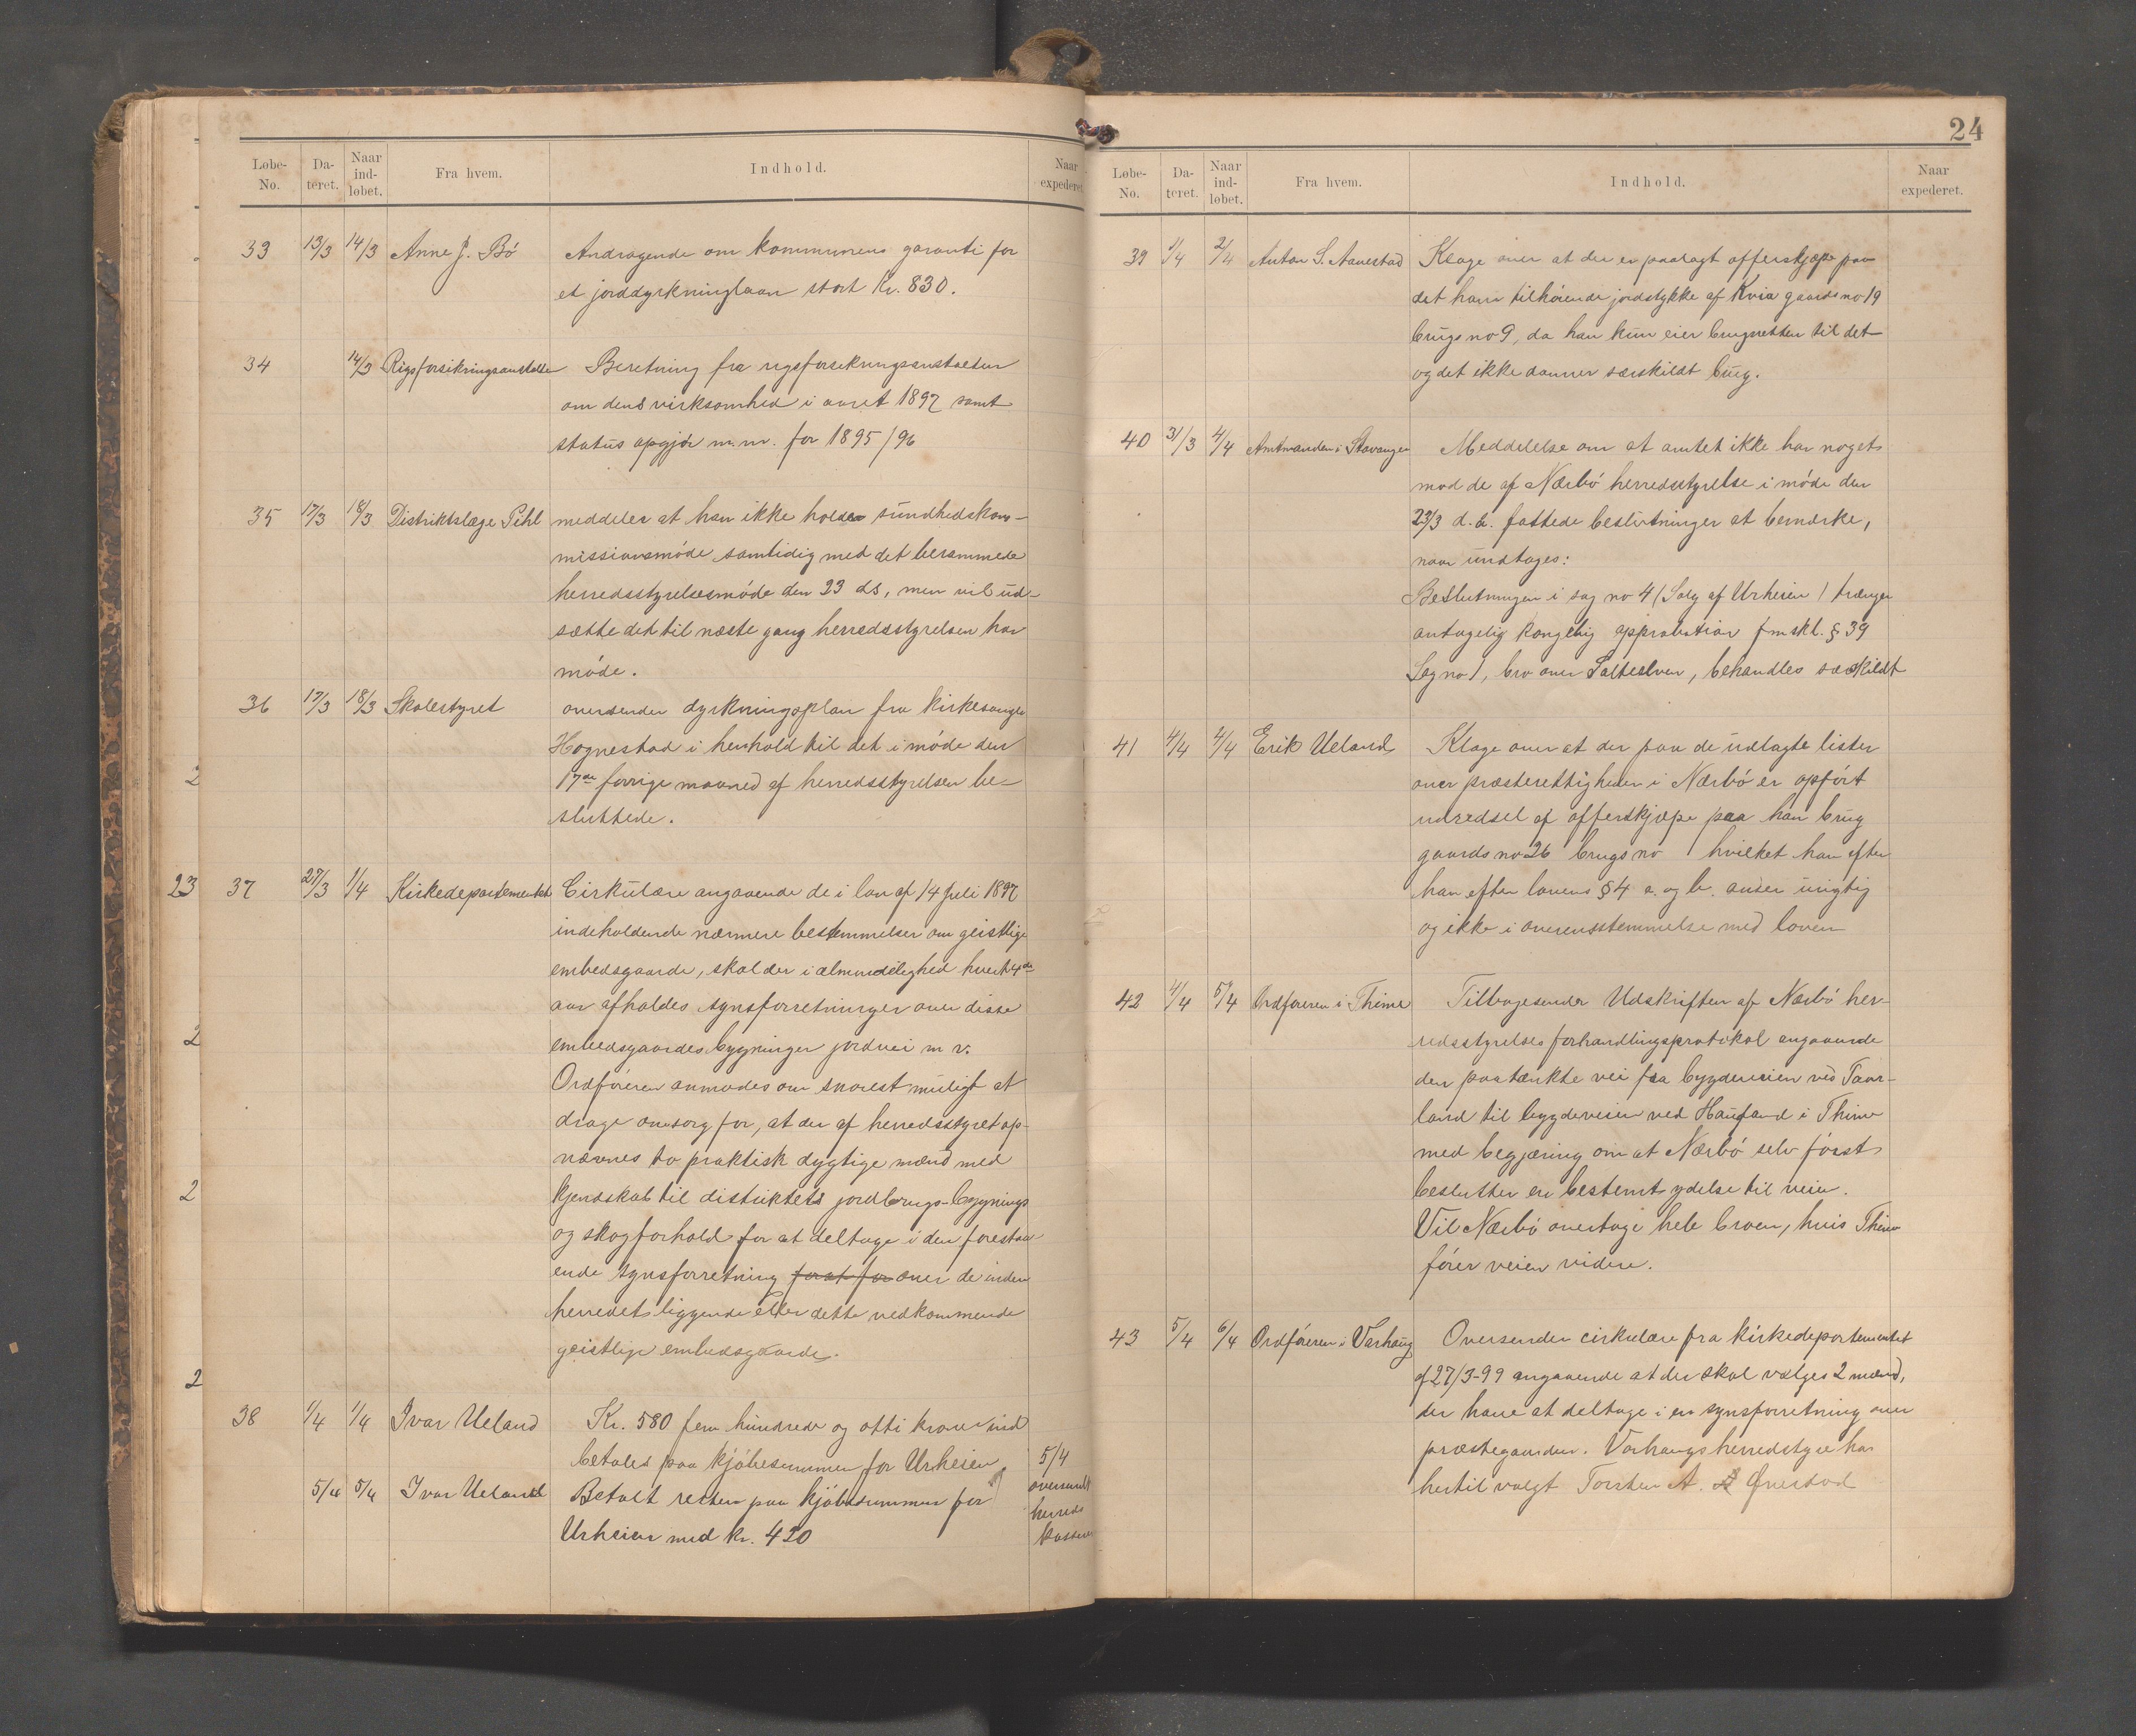 Løbe-No. Da-teret. Naar ind-løbet. Fra hvem. Indhold. Naar expederet
33 13/3 14/3 Anne J. Bö Andragende om kommunens garanti for
et jorddyrkningslaan stort Kr. 830.
34 14/3 Rigsforsikringsanstalten Beretning fra rigsforsikringsanstalten
om dens virksomhed i aaret 1897 samt
status opgjör m.m. for 1895/96
35 17/3 18/3 Distriktslæge Pihl meddeler at han ikke holder sundhedskom-
missionsmöde samtidig med det berammede
herredsstyrelsesmöde den 23 ds, men vil ud-
sætte det til næste gang herredsstyrelsen har
möde.
36 17/3 18/3 Skolestyret oversender dyrkningsplan fra kirkesanger
Hognestad i henhold til det i möde den
17de forrige maaned af herredsstyrelsen be-
sluttede.
23 37 27/3 1/4 Kirkedepartementet Cirkulære angaaende de i lov af 14 juli 1897
indeholdende nærmere bestemmelser om geistlige
embedsgaarde, skal der i almindelighed hvert 4de
aar afholdes synsforretninger over disse
embedsgaardes bygninger jordvei m v.
Ordföreren anmodes om snarest muligt at
drage omsorg for, at der af herredsstyret op-
nævnes to praktisk dygtige mænd med
kjendskab til distriktets jordbrugs-bygnings
og skogforhold for at deltage i den forestaa-
ende synsforretning forat for over de inden
herredets liggende eller dette vedkommende
geistlige embedsgaarde.
38 1/4 1/4 Ivar Ueland Kr. 580 fem hundrede og otti kroner ind
betales paa kjöbesummen for Urheien 5/4
5/4 5/4 Ivar Ueland Betalt resten paa kjöbesummen for oversendt
herreds
Urheien med kr. 420 kasserer
2
2
2
2
24
Løbe-No. Da-teret. Naar ind-løbet. Fra hvem. Indhold. Naar expederet.
39 1/4 2/4 Anton S. Aanestad Klage over at der er paalagt offerskjæppe paa
det ham tilhörende jordstykke af Kvia gaards no 19
brugs no 9, da han kun eier brugsretten til det
og det ikke danner særskildt brug.
40 31/3 4/4 Amtmanden i Stavanger Meddelelse om at amtet ikke har noget
mod de af Nærbö herredsstyrelse i möde den
23/3 d. a. fattede beslutninger at bemærke,
naar undtages:
Beslutningen i sag no 4 (Salg af Urheien) trænger
antagelig kongelig approbation fmskl. § 39
Sag no 1, bro over Salteelven, behandles særskildt
41 4/4 4/4 Erik Ueland Klage over at der paa de udlagte lister
over præsterettigheder i Nærbö er opfört
udredsel af offerskjæpe paa han brug
gaards no 26 brugs no 1 hvilket han efter
han efter lovens § 4 a. og b. anser urigtig
og ikke i overensstemmelse med loven
42 4/4 5/4 Ordföreren i Thime Tilbagesender Udskriften af Nærbö her-
redsstyrelses forhandlingsprotokol angaaende
den paatænkte vei fra bygdeveien ved Taar-
land til bygdeveien ved Haugland i Thime
med begjæring om at Nærbö selv först
beslutter en bestemt ydelse til veien.
Vil Nærbö overtage hele broen, hvis Thime
förer veien videre.
43 5/4 6/4 Ordföreren i Varhaug Oversender cirkulære fra kirkedepartementet
af 27/3-99 angaaende at der skal vælges 2 mænd,
der have at deltage i en synsforretning over
præstegaarden. Varhaugs herredstyre har
hertil valgt Torsten A.